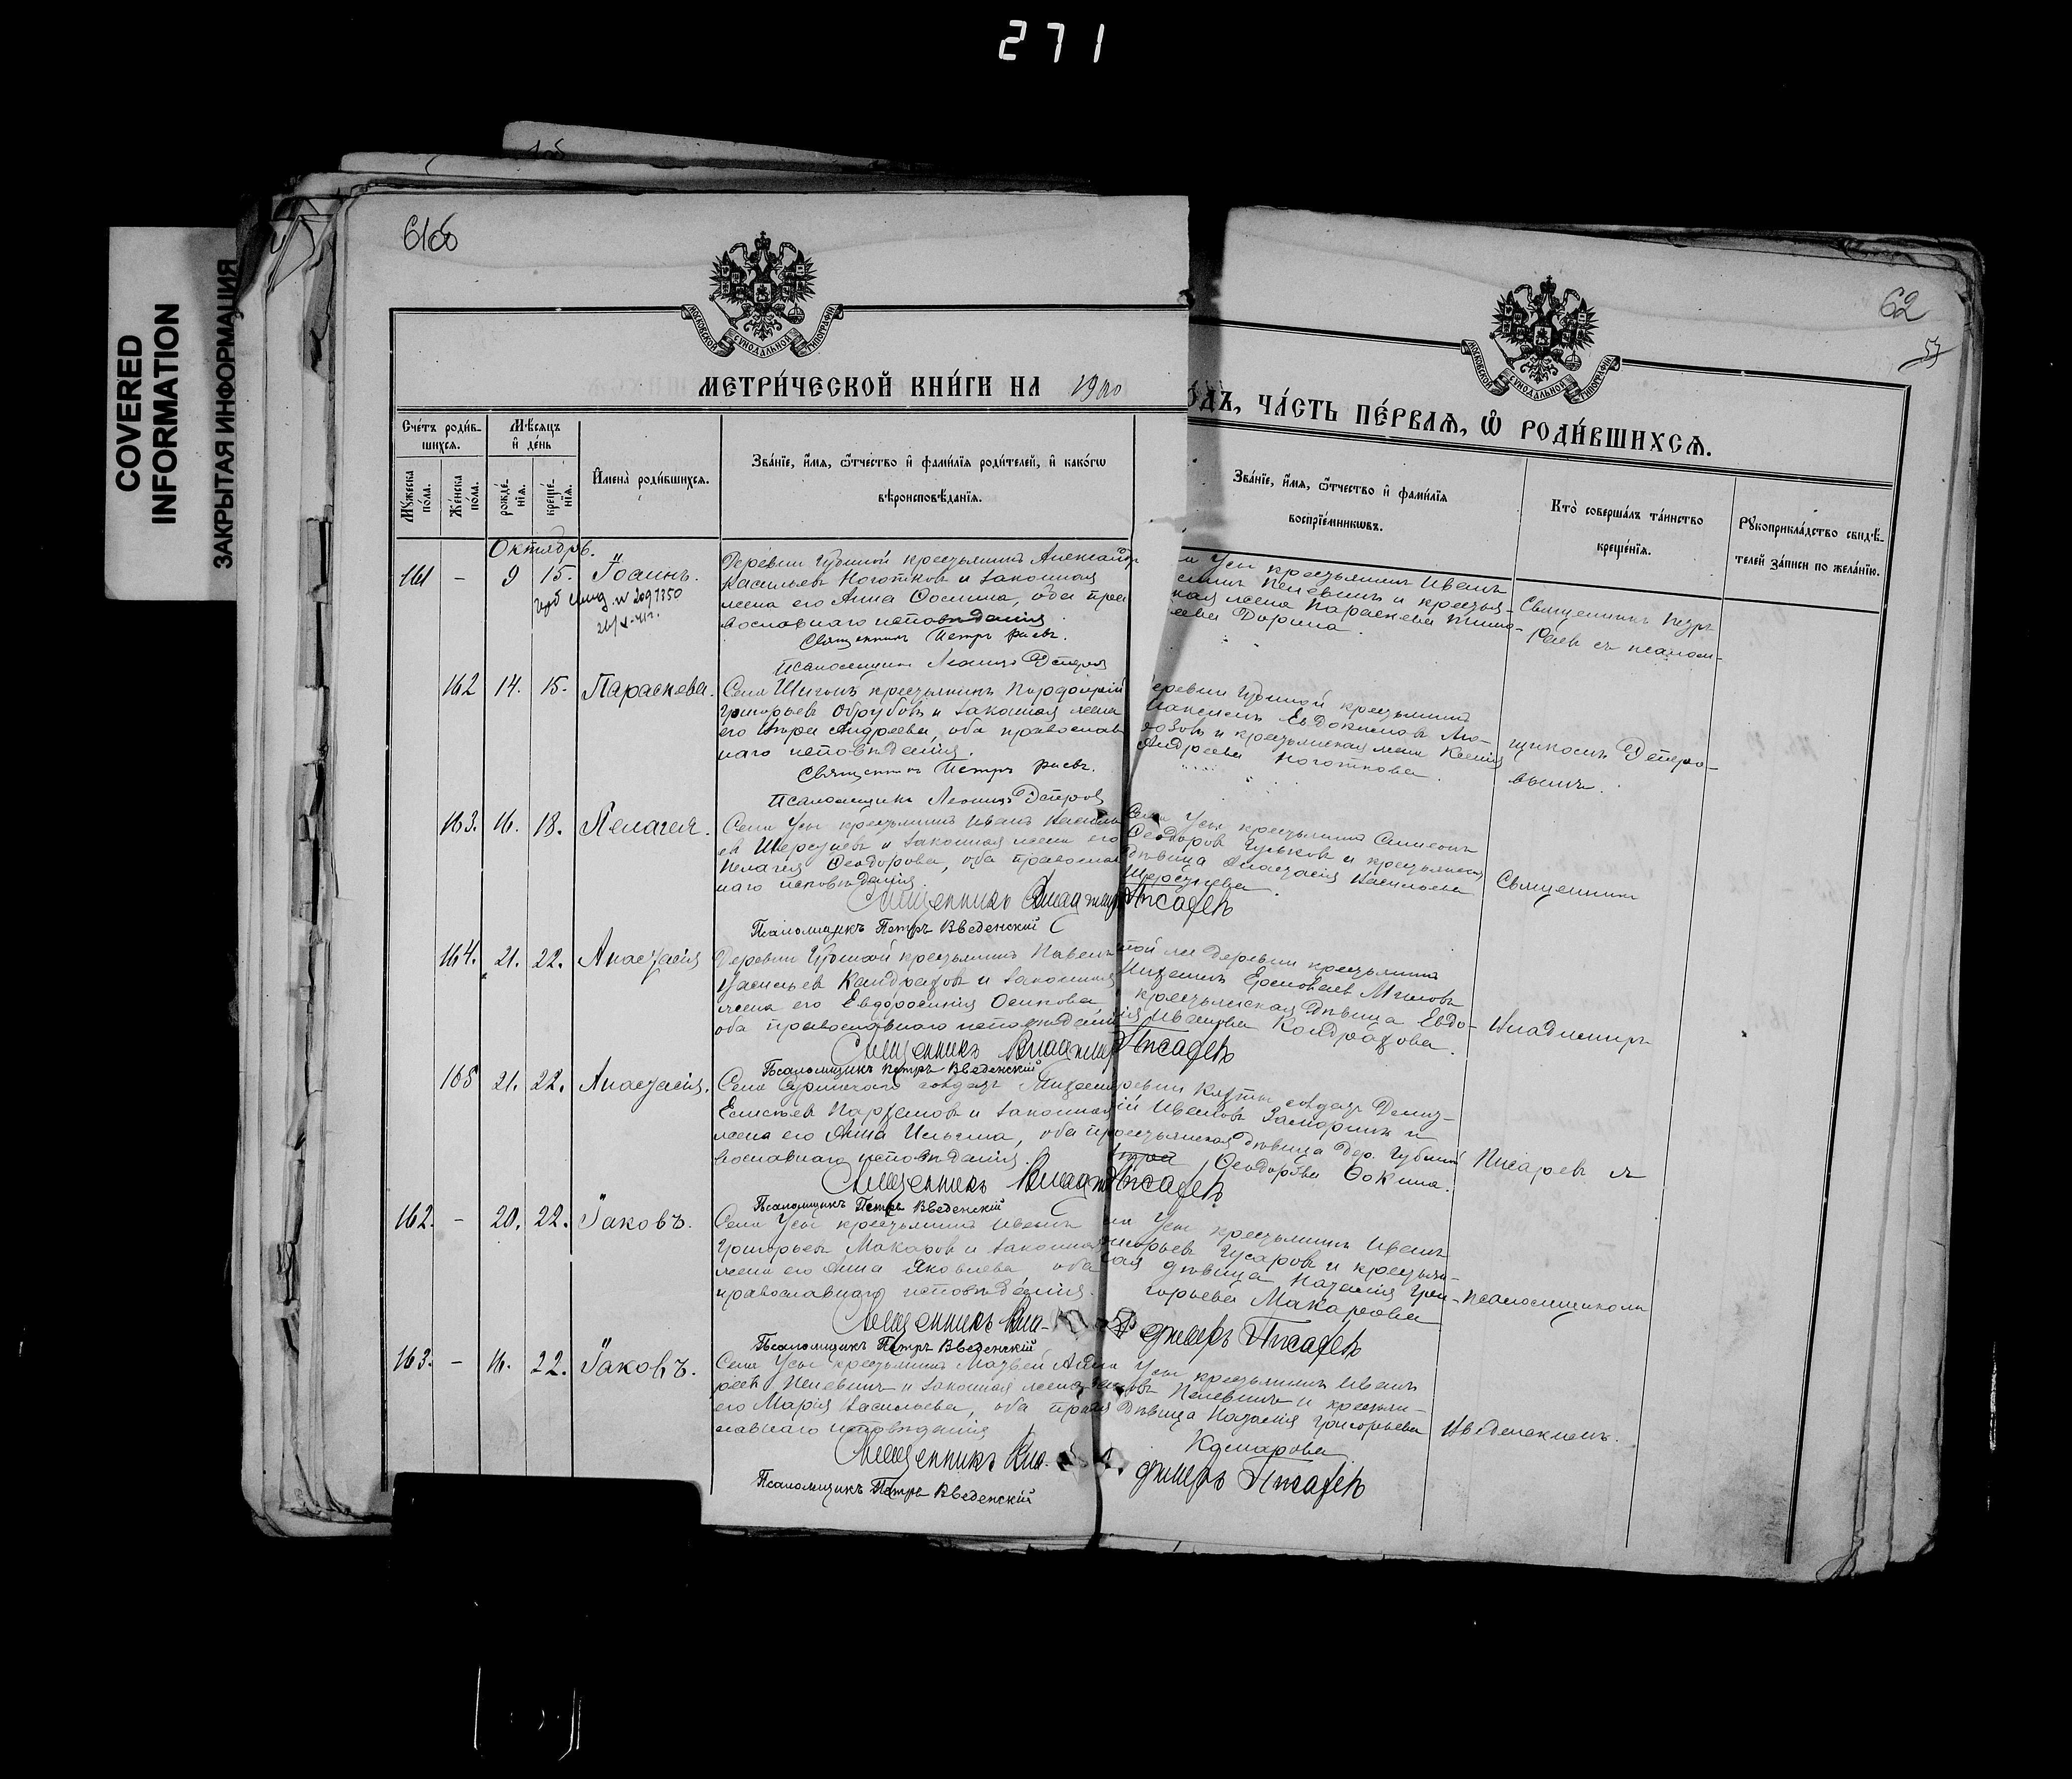 271
COVERED
INFORMATION
ЗАКРЫТАЯ ИНФОРМАЦИЯ
61об
62
МОСКОВСКОЙ СѴНОДАЛЬНОЙ ТИПОГРАФІИ
МОСКОВСКОЙ СѴНОДАЛЬНОЙ ТИПОГРАФІИ
МЕТРИ́ЧЕСКОЙ КНИ́ГИ НА 1900
ОДЪ, ЧА́СТЬ ПЕ́РВАѦ, Ѡ҆ РОДИ́ВШИХСѦ.
Сче́тъ роди́в-
шихсѧ.
Мꙋ́жеска
по́ла.
Же́нска
по́ла.
Мѣ́сѧцъ
и҆ де́нь
рожде́-
нїѧ.
креще́-
нїѧ.
И҆мена̀ роди́вшихсѧ.
Зва́нїе, и҆́мѧ, ѻ҆́тчество и҆ фами́лїѧ роди́телей, и҆ како́гѡ
вѣроисповѣ́данїѧ.
Зва́нїе, и҆́мѧ, ѻ҆́тчество и҆ фами́лїѧ
воспрїе́мникѡвъ.
Кто̀ соверша́лъ та́инство
креще́нїѧ.
Рꙋкоприкла́дство свидѣ́-
телей за́писи по жела́нїю.
Октябрь.
161 - 9 15. Іоаннъ.
Деревни Губиной крестьянинъ Александр
Васильевъ Ноготковъ и законная
жена его Анна Фомина, оба пра
вославнаго исповѣданія
Священникъ Петръ Раевъ.
Псаломщикъ Леонидъ
Усы крестьянинъ Иванъ
Пелевинъ и крестьян-
ская жена Параскева
Дорина.
Священникъ Петръ
Раевъ съ псалом-
162 14. 15. Параскева.
Села Шигонъ крестьянинъ
Григорьевъ Обрубовъ и законная жена
его Андреева, оба православ
наго исповѣданія.
Священникъ Петръ Раевъ.
Псаломщикъ Леонидъ
деревни Губиной крестьянинъ
Максимъ Евдокимовъ Мо-
розовъ и крестьянская жена Ксенія
Андреева Ноготкова.
щикомъ
163. 16. 18. Пелагея.
Села Усы крестьянинъ Иванъ Василь
евъ Шерстневъ и законная жена его
Пелагея Ѳеодорова, оба православ
наго исповѣданія.
Священникъ Владимиръ Писаревъ
Псаломщикъ Петръ Введенскій
Села Усы крестьянинъ Симеонъ
Ѳеодоровъ Гуськовъ и крестьянская
дѣвица Анастасія Васильева
Шерстнева.
Священникъ
164. 21. 22. Анастасія
Деревни Губиной крестьянинъ Павелъ
Васильевъ Кандратовъ и законная
жена его Евдоросинія Осипова
оба православнаго исповѣданія
Священникъ Владимиръ Писаревъ
Псаломщикъ Петръ Введенскій
той же деревни крестьянинъ
крестьянская дѣвица Евдо-
кія Иванова Кондратова.
Владимиръ
165 21. 22. Анастасія.
Села солдатъ
Елисѣевъ и законная
жена его Анна Ильина, оба пра
вославнаго исповѣданія.
Священникъ Владимиръ Писаревъ
Псаломщикъ Петръ Введенскій
солдатъ
Ивановъ и
крестьянская дѣвица дер. Губиной
Ѳеодорова Ѳокина.
Писаревъ съ
162. - 20. 22. Іаковъ.
Села Усы крестьянинъ Иванъ
Григорьевъ Макаровъ и законная
жена его Анна Яковлева оба
православнаго исповѣданія.
Священникъ Вла-
димиръ Писаревъ
Псаломщикъ Петръ Введенскій
Усы крестьянинъ Иванъ
Григорьевъ Гусаровъ и крестьян-
ская дѣвица Наталія Гри-
горьева Макарова
псаломщикомъ
163. - 16. 22. Іаковъ.
Села Усы крестьянинъ Матвей
Пелевинъ и законная жена
его Марія Васильева, оба право
славнаго исповѣданія
Священникъ Вла-
димиръ Писаревъ
Псаломщикъ Петръ Введенскій
Усы крестьянинъ Иванъ
Пелевинъ и крестьян-
ская дѣвица Наталія Григорьева
Комарова
Введенскимъ.